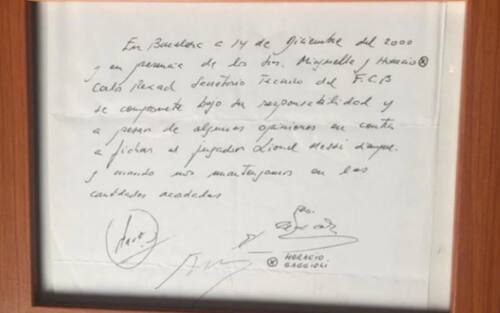 En Barcelona a 14 de Diciembre del 2000
y en presencia de los Sres. Minguella y Horacio
Carlos Rexach Secretario Tecnico del F.C.B
se compromete bajo su responsabilidad y
a pesar de algunas opiniones en contra
a fichar al jugador Lionel Messi siempre
y cuando nos mantengamos en las
cantidades acordadas
HORACIO
GAGGIOLI